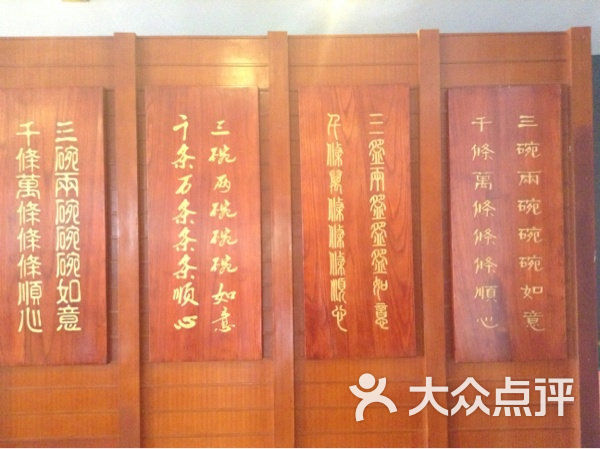 三碗兩碗碗碗如意
千條萬條條條順心
三碗两碗碗碗如意
千条万条条条顺心
三盌兩盌盌盌如意
千條萬條條條順心
三碗兩碗碗碗如意
千條萬條條條順心
大众点评